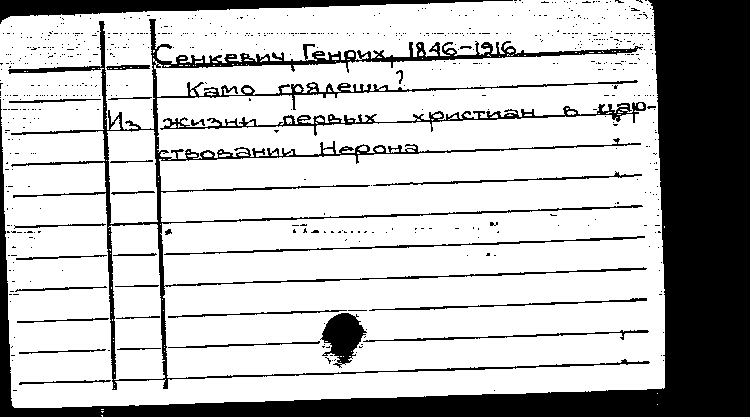 Сенкевич, Генрих, 1846-1916.
Камо грядеши?
Из жизни первых христиан в цар-
ствовании Нерона